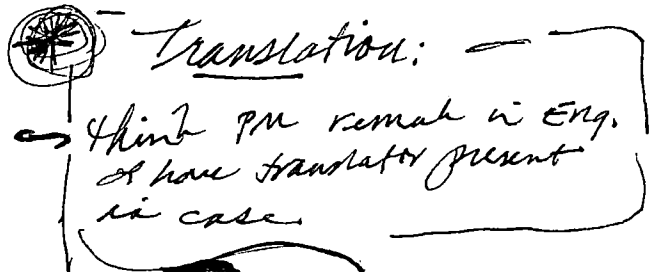 Translation:
think PM remark in Eng.
& have translator present
in case.